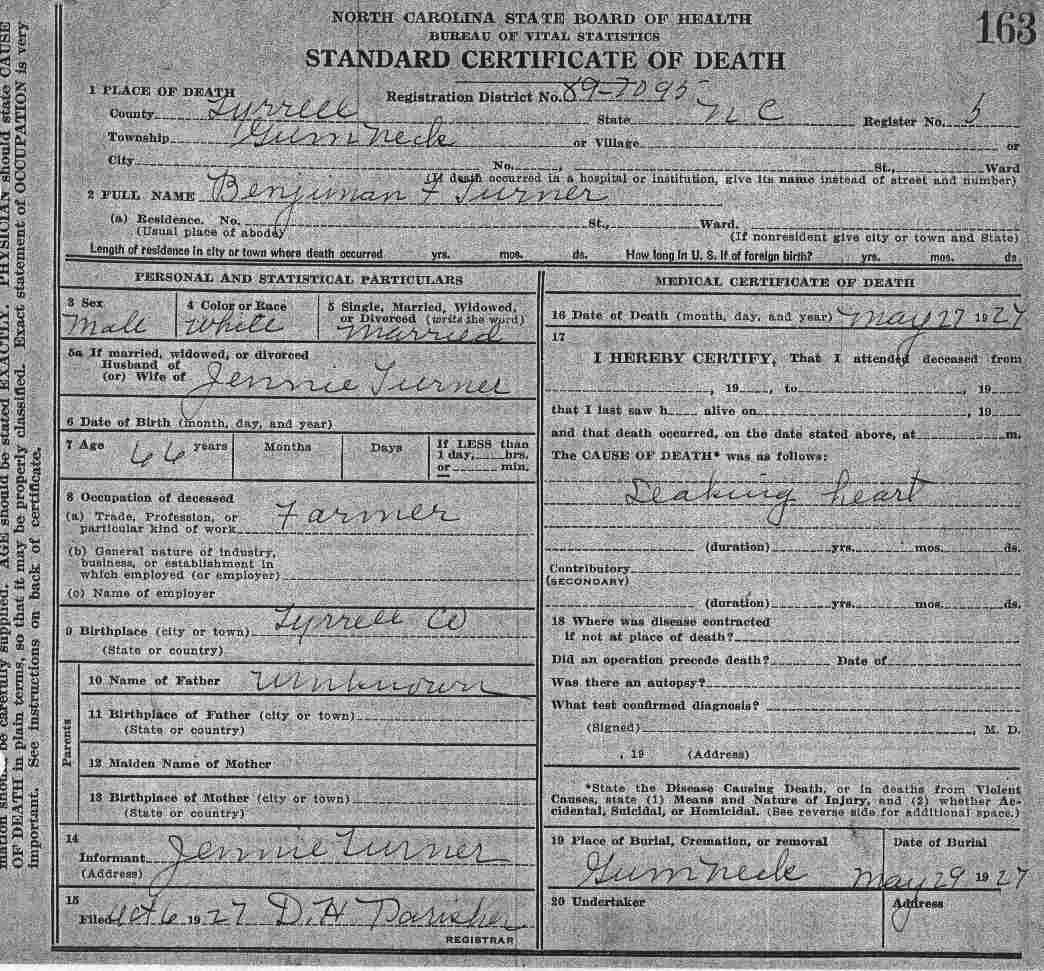 NORTH CAROLINA STATE BOARD OF HEALTH
BUREAU OF VITAL STATISTICS
STANDARD CERTIFICATE OF DEATH
163
1 PLACE OF DEATH
Registration District No. 89-7095
County Tyrrell State N C Register No. 5
Township Gum Neck or Village or
City No. St., Ward
(If death occurred in a hospital or institution, give its name instead of street and number)
2 FULL NAME Benjiman F Turner
(a) Residence. No. St., Ward.
(Usual place of abode) (If nonresident give city or town and State)
Length of residence in city or town where death occurred yrs. mos. ds. How long in U. S. if of foreign birth? yrs. mos. ds.
PERSONAL AND STATISTICAL PARTICULARS
3 Sex
Male
4 Color or Race
White
5 Single, Married, Widowed,
or Divorced (write the word)
Married
5a If married, widowed, or divorced
Husband of
(or) Wife of Jennie Turner
6 Date of Birth (month, day, and year)
7 Age 66 years Months Days If LESS than
1 day, hrs.
or min.
8 Occupation of deceased
(a) Trade, Profession, or
particular kind of work Farmer
(b) General nature of industry,
business, or establishment in
which employed (or employer)
(c) Name of employer
9 Birthplace (city or town) Tyrrell Co
(State or country)
Parents
10 Name of Father Unknown
11 Birthplace of Father (city or town)
(State or country)
12 Maiden Name of Mother
13 Birthplace of Mother (city or town)
(State or country)
14
Informant Jennie Turner
(Address)
15
Filed Oct 6 1927 D. H Parisher
REGISTRAR
MEDICAL CERTIFICATE OF DEATH
16 Date of Death (month, day, and year) May 27 1927
17
I HEREBY CERTIFY, That I attended deceased from
, 19 , to , 19
that I last saw h alive on , 19
and that death occurred, on the date stated above, at m.
The CAUSE OF DEATH* was as follows:
Leaking heart
(duration) yrs. mos. ds.
Contributory
(SECONDARY)
(duration) yrs. mos. ds.
18 Where was disease contracted
if not at place of death?
Did an operation precede death? Date of
Was there an autopsy?
What test confirmed diagnosis?
(Signed) , M. D.
, 19 (Address)
*State the Disease Causing Death, or in deaths from Violent
Causes, state (1) Means and Nature of Injury, and (2) whether Ac-
cidental, Suicidal, or Homicidal. (See reverse side for additional space.)
19 Place of Burial, Cremation, or removal
Gum Neck
Date of Burial
May 29 1927
20 Undertaker
Address
be carefully supplied. AGE should be stated EXACTLY. PHYSICIAN should state CAUSE
OF DEATH in plain terms, so that it may be properly classified. Exact statement of OCCUPATION is very
important. See instructions on back of certificate.